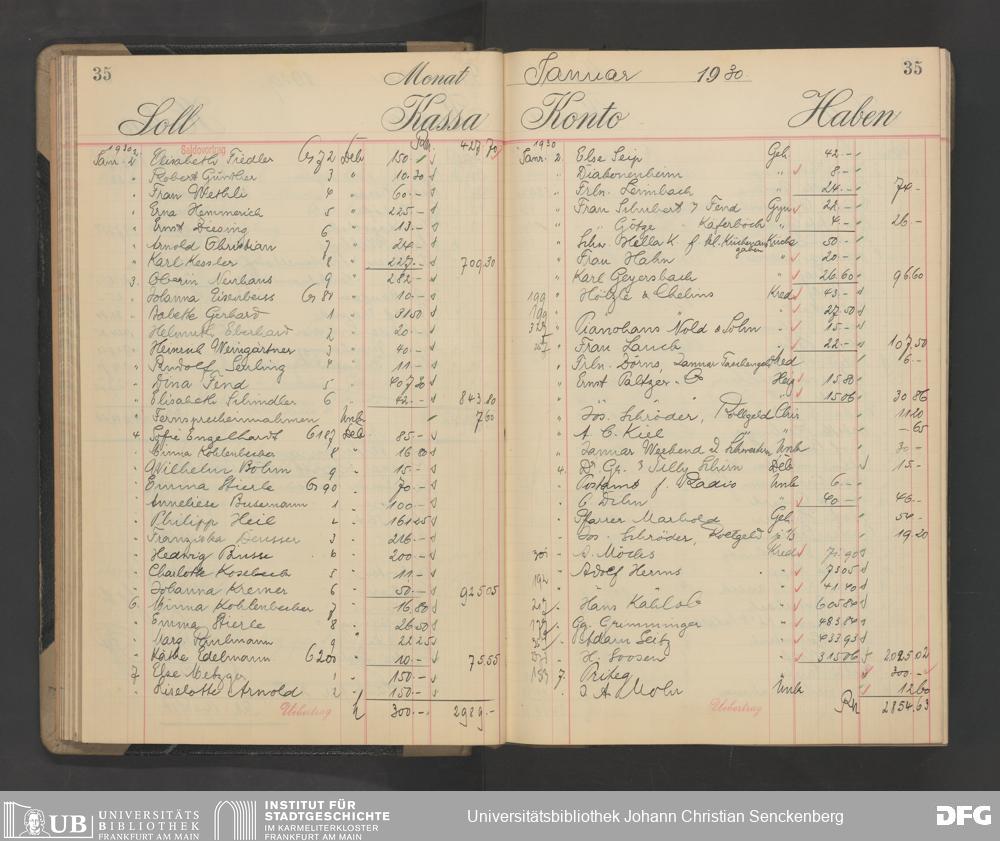 35
Monat
Soll
Kassa
Saldovortrag
427 70
1930
Janr. 2 Elisabeth Fiedler G 72 Deb 150.-
" Robert Günther 3 " 10.30
" Frau Wethli 4 " 60.-
" Erna Hemmerich 5 " 225.-
" Ernst Diesing 6 " 13.-
" Arnold Christian 7 " 24.-
" Karl Kessler 8 " 227.- 709.30
3. Oberin Neuhaus 9 " 282.-
" Johanna Eisenbeiss G 80 " 10.-
" Babette Gerhard 1 " 31.50
" Helmuth Eberhard 2 " 20.-
" Heinrich Weingärtner 3 " 40.-
" Rudolf Seiling 4 " 11.-
" Dina Fend 5 " 407.30
" Elisabeth Schindler 6 " 42.- 843.80
" Fernsprecheinnahmen Unk 7.60
4 Sofie Engelhardt G 187 Deb 85.-
" Minna Kohlenbecher 8 " 16.80
" Wilhelm Bohm 9 " 15.-
" Emma Stierle G 90 " 70.-
" Anneliese Busemann 1 " 100.-
" Philipp Heil 2 " 161.25
" Franziska Deusser 3 " 216.-
" Hedwig Busse " 200.-
" Charlotte 5 " 11.-
" Johanna Kremer 6 " 50.- 925.05
6. Minna Kohlenbecher 7 " 16.80
" Emma Stierle 8 " 26.50
" Marg. Paulmann 9 " 22.25
" Käthe Edelmann G 200 10.- 75.55
7. Else Metzger 1 " 150.-
" Liselotte Arnold 2 150.-
Uebertrag 300.- 2989.-
Januar 1930.
35
Konto
Haben
1930
Janr. 2. Else Seip Geh. 42.-
" Diakonenheim " 8.-
" Frln. Leimbach " 24.- 74.-
" Frau Schubert & Fend Gym 22.-
" " Götze Käferböck " 4.- 26.-
" Schw. Hella K. f. kl. Küchenausgaben Küche 50.-
" Frau Hahn " 20.-
" Karl Geyersbach " 26.60 96.60
199 " Hölzle & Chelius Kred 43.-
199 " " " 27.50
" Pianohaus Nold & Sohn " 15.-
" Frau Lauck " 22.- 107.50
" Frln. Dörns, Januar Taschengeld Kred 6.-
" Ernst Paltzer " Heiz 15.80
" " " 15.06 30.86
" Jos. Schröder, Rollgeld 11.20
" A. C. Kiel -65
" Januar Unk 30.-
4. Dr. Gr. & Tilly Schirm Deb 15.-
" Postamt f. Radio Unk 6.-
" C. Dehn " 40.- 46.-
" Pfarrer Marhold Geh. 54.-
" Jos. Schröder, Rollgeld 19.20
" A. Möchs Kred 71.90
" Adolf Herms " 73.05
194 " " " 41.40
" Hans Kahl " 605.80
" Gg. Grimminger " 483.84
" Adam Seitz " 433.93
" H. Goosen " 315.06 2025.02
7. Priteg 300.-
" J. A. Mohr Unk 12.60
Uebertrag 2854.63
UB UNIVERSITÄTS BIBLIOTHEK FRANKFURT AM MAIN
INSTITUT FÜR STADTGESCHICHTE IM KARMELITERKLOSTER FRANKFURT AM MAIN
Universitätsbibliothek Johann Christian Senckenberg
DFG